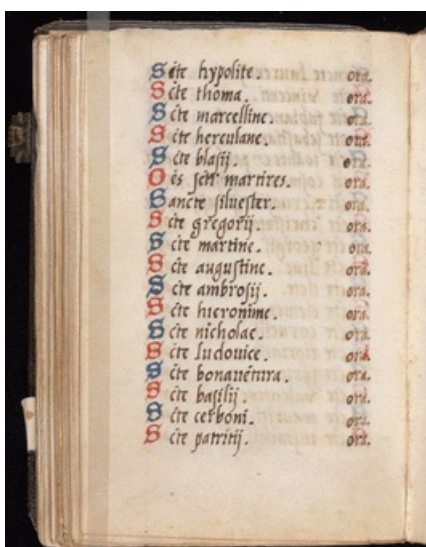 Scte hypolite. ora.
Scte thoma. ora.
Scte marcelline. ora.
Scte herculane. ora.
Scte blasij. ora.
Oēs scti martires. ora.
Sancte silvester. ora.
Scte gregorij. ora.
Scte martine. ora.
Scte augustine. ora.
Scte ambrosij. ora.
Scte hieronime. ora.
Scte nicholae. ora.
Scte ludovice. ora.
Scte bonavētura. ora.
Scte basilij. ora.
Scte cerboni. ora.
Scte patritij. ora.